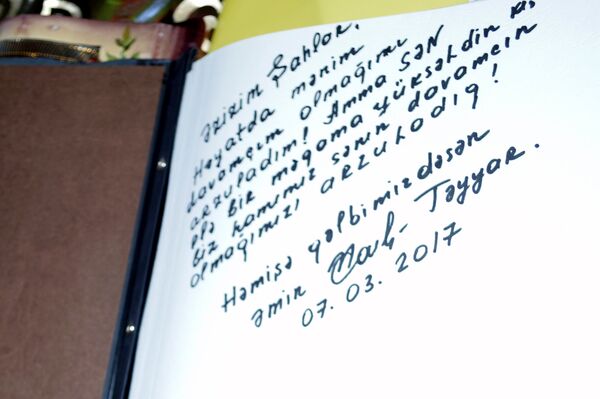 əzizim Şahlar,
Həyatda mənim
davamçım olmağını
arzuladım! Amma SəN
elə bir məqama yüksəldin ki,
biz hamımız sənin davamçın
olmağımızı arzuladıq!
Həmişə qəlbimizdəsən
əmin Təyyar.
07.03.2017